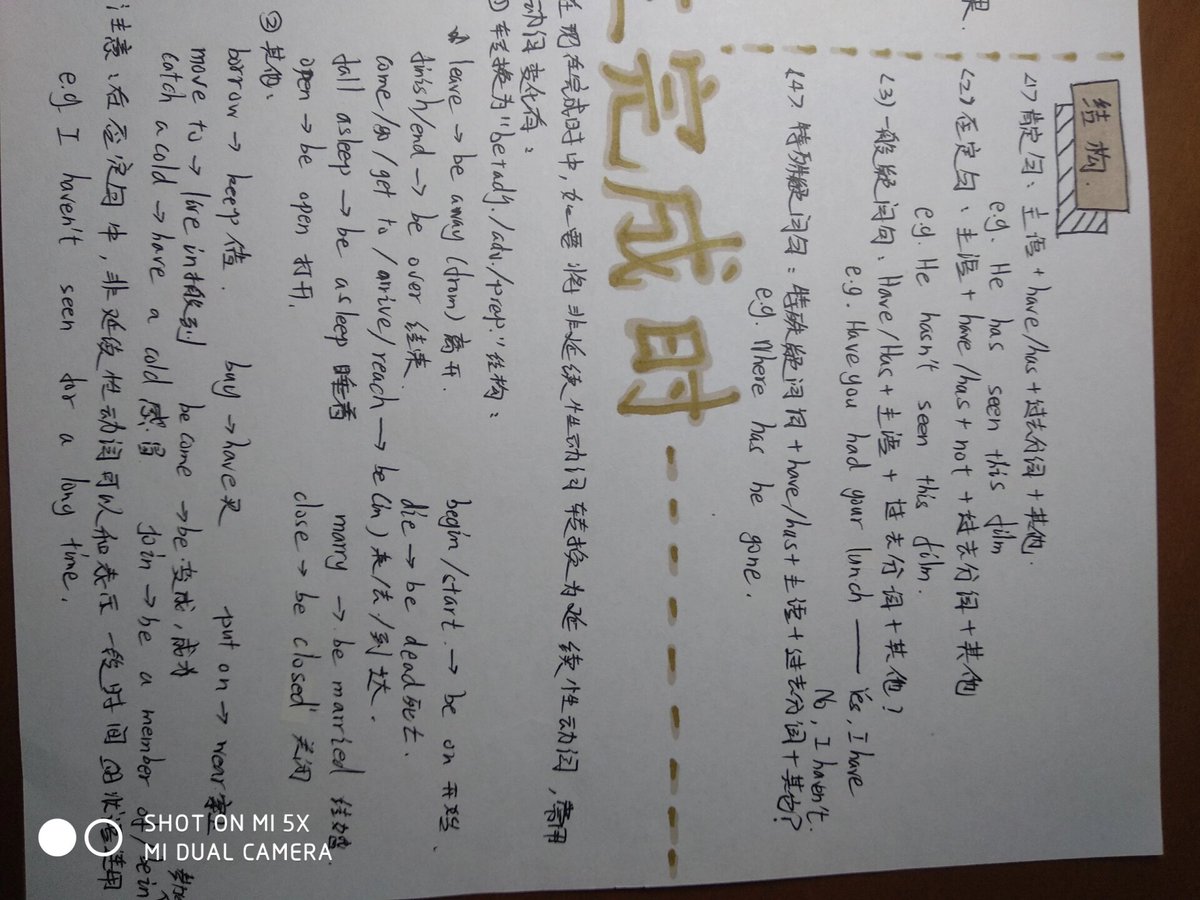 果.
结构.
<1> 肯定句：主语 + have/has + 过去分词 + 其他.
e.g. He has seen this film
<2> 否定句：主语 + have/has + not + 过去分词 + 其他
e.g. He hasn't seen this film.
<3) 一般疑问句：Have/Has + 主语 + 过去分词 + 其他?
e.g. Have you had your lunch —— Yes, I have
No, I haven't.
<4> 特殊疑问句：特殊疑问词 + have/has + 主语 + 过去分词 + 其他?
e.g. Where has he gone.
完成时
在现在完成时中，如要将非延续性动词转换为延续性动词，常用
动词变化有：
① 转换为"be+adj./adv./prep."结构：
leave → be away (from) 离开. begin/start. → be on 开始.
finish/end → be over 结束. die → be dead 死亡.
come/go/get to/arrive/reach → be (in) 来/去/到达.
fall asleep → be asleep 睡着 marry → be married 结婚.
open → be open 打开. close → be closed 关闭
② 其他：
borrow → keep 借. buy → have 买 put on → wear 穿
move to → live in 搬到 become → be 变成，成为
catch a cold → have a cold 感冒 join → be a member of / be in
注意：在否定句中，非延续性动词可以和表示一段时间的状语连用
e.g I haven't seen for a long time.
SHOT ON MI 5X
MI DUAL CAMERA